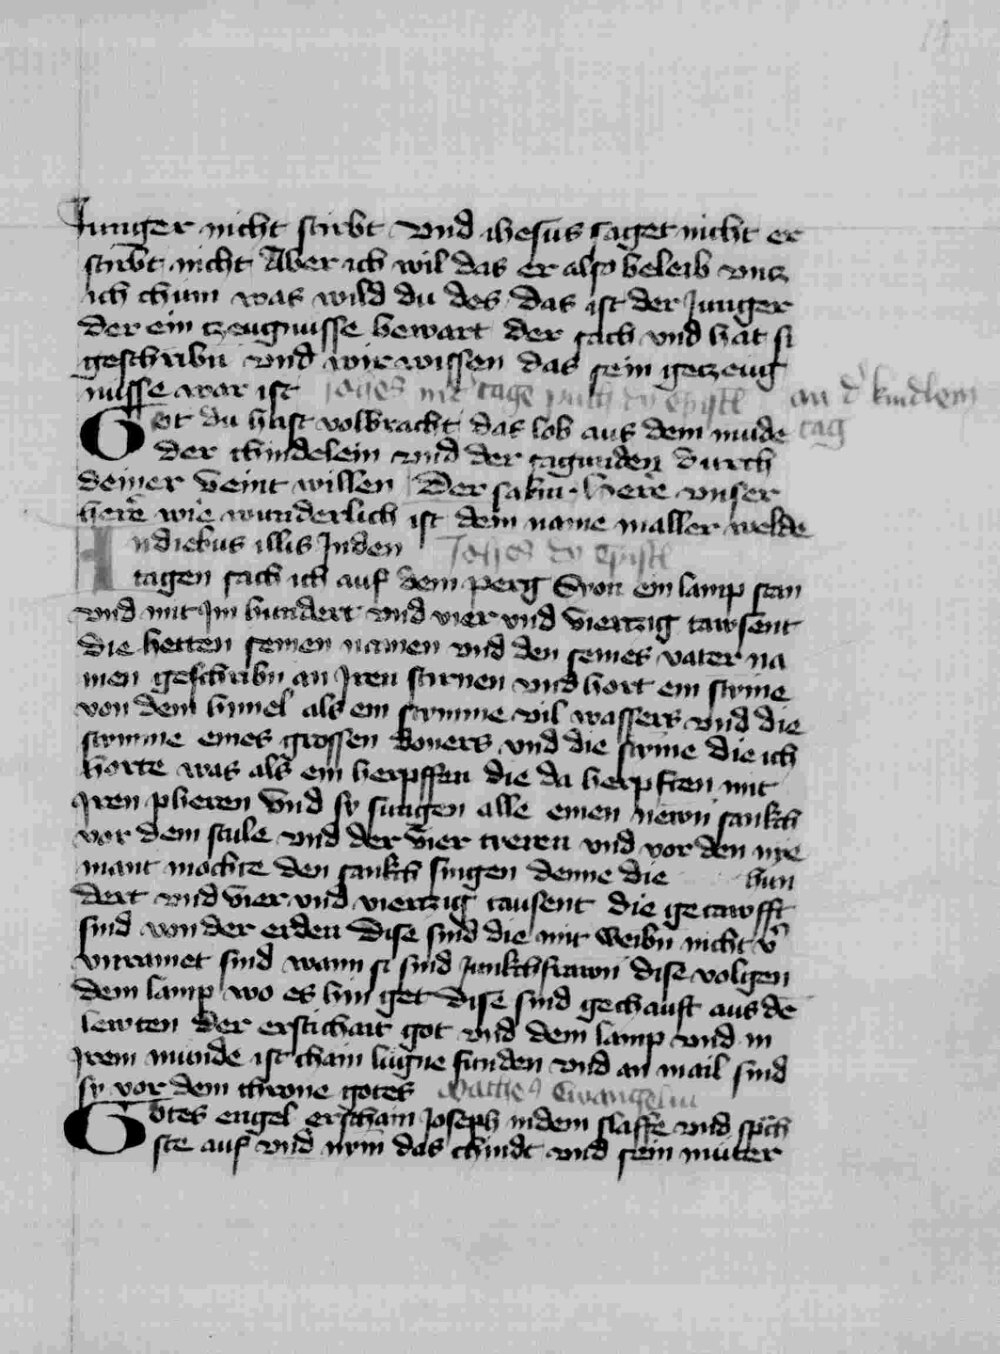 Junger nicht stirbt Vnd ihesus saget nicht er
stirbt nicht Aber ich wil das er also beleib vntz
ich chum was wild du des das ist der Junger
der ein tzeugnusse bewart der sach vnd hat si
geschribn vnd wir wissen das sein getzeug
nusse war ist
an d kindlein
tag
Got du hast volbracht das lob aus dem mude
der chindelein vnd der sagunden durch
deiner veint willen Der salm Here vnser
here wie wunderlich ist dein name in aller welde
In diebus illis In den Johes in epistl
tagen sach ich auf dem perg Syon ein lamp stan
vnd mit Im hundert vnd vier vnd viertzig tawsent
die hetten seinen namen vnd den seines vater na
men geschribn an Iren stirnen vnd hort ein stime
von dem himel als ein stymme vil wassers vnd die
stymme eines grossen doners vnd die stime die ich
horte was als ein herpffen die da herpften mit
Iren pheren Vnd sy sungen alle einen newn sankch
vor dem stule vnd der vier tyeren vnd vor den nye
mant mochte den sankch singen denne die hun
dert vnd vier vnd viertzig tausent die getawfft
sind von der erden Dise sind die mit weibn nicht v
vnraniet sind wann si sind Junkchfrawn dise volgen
dem lamp wo es hin get Dise sind gechauft aus de
lewten der erstichait got vnd dem lamp vnd in
Irem munde ist chain lugne funden vnd an mail sind
sy vor dem throne gotes Matheus Ewangelin
Gotes engel erschain Joseph in dem slaffe vnd sprich
ste auf vnd nym das chindt vnd sein muter